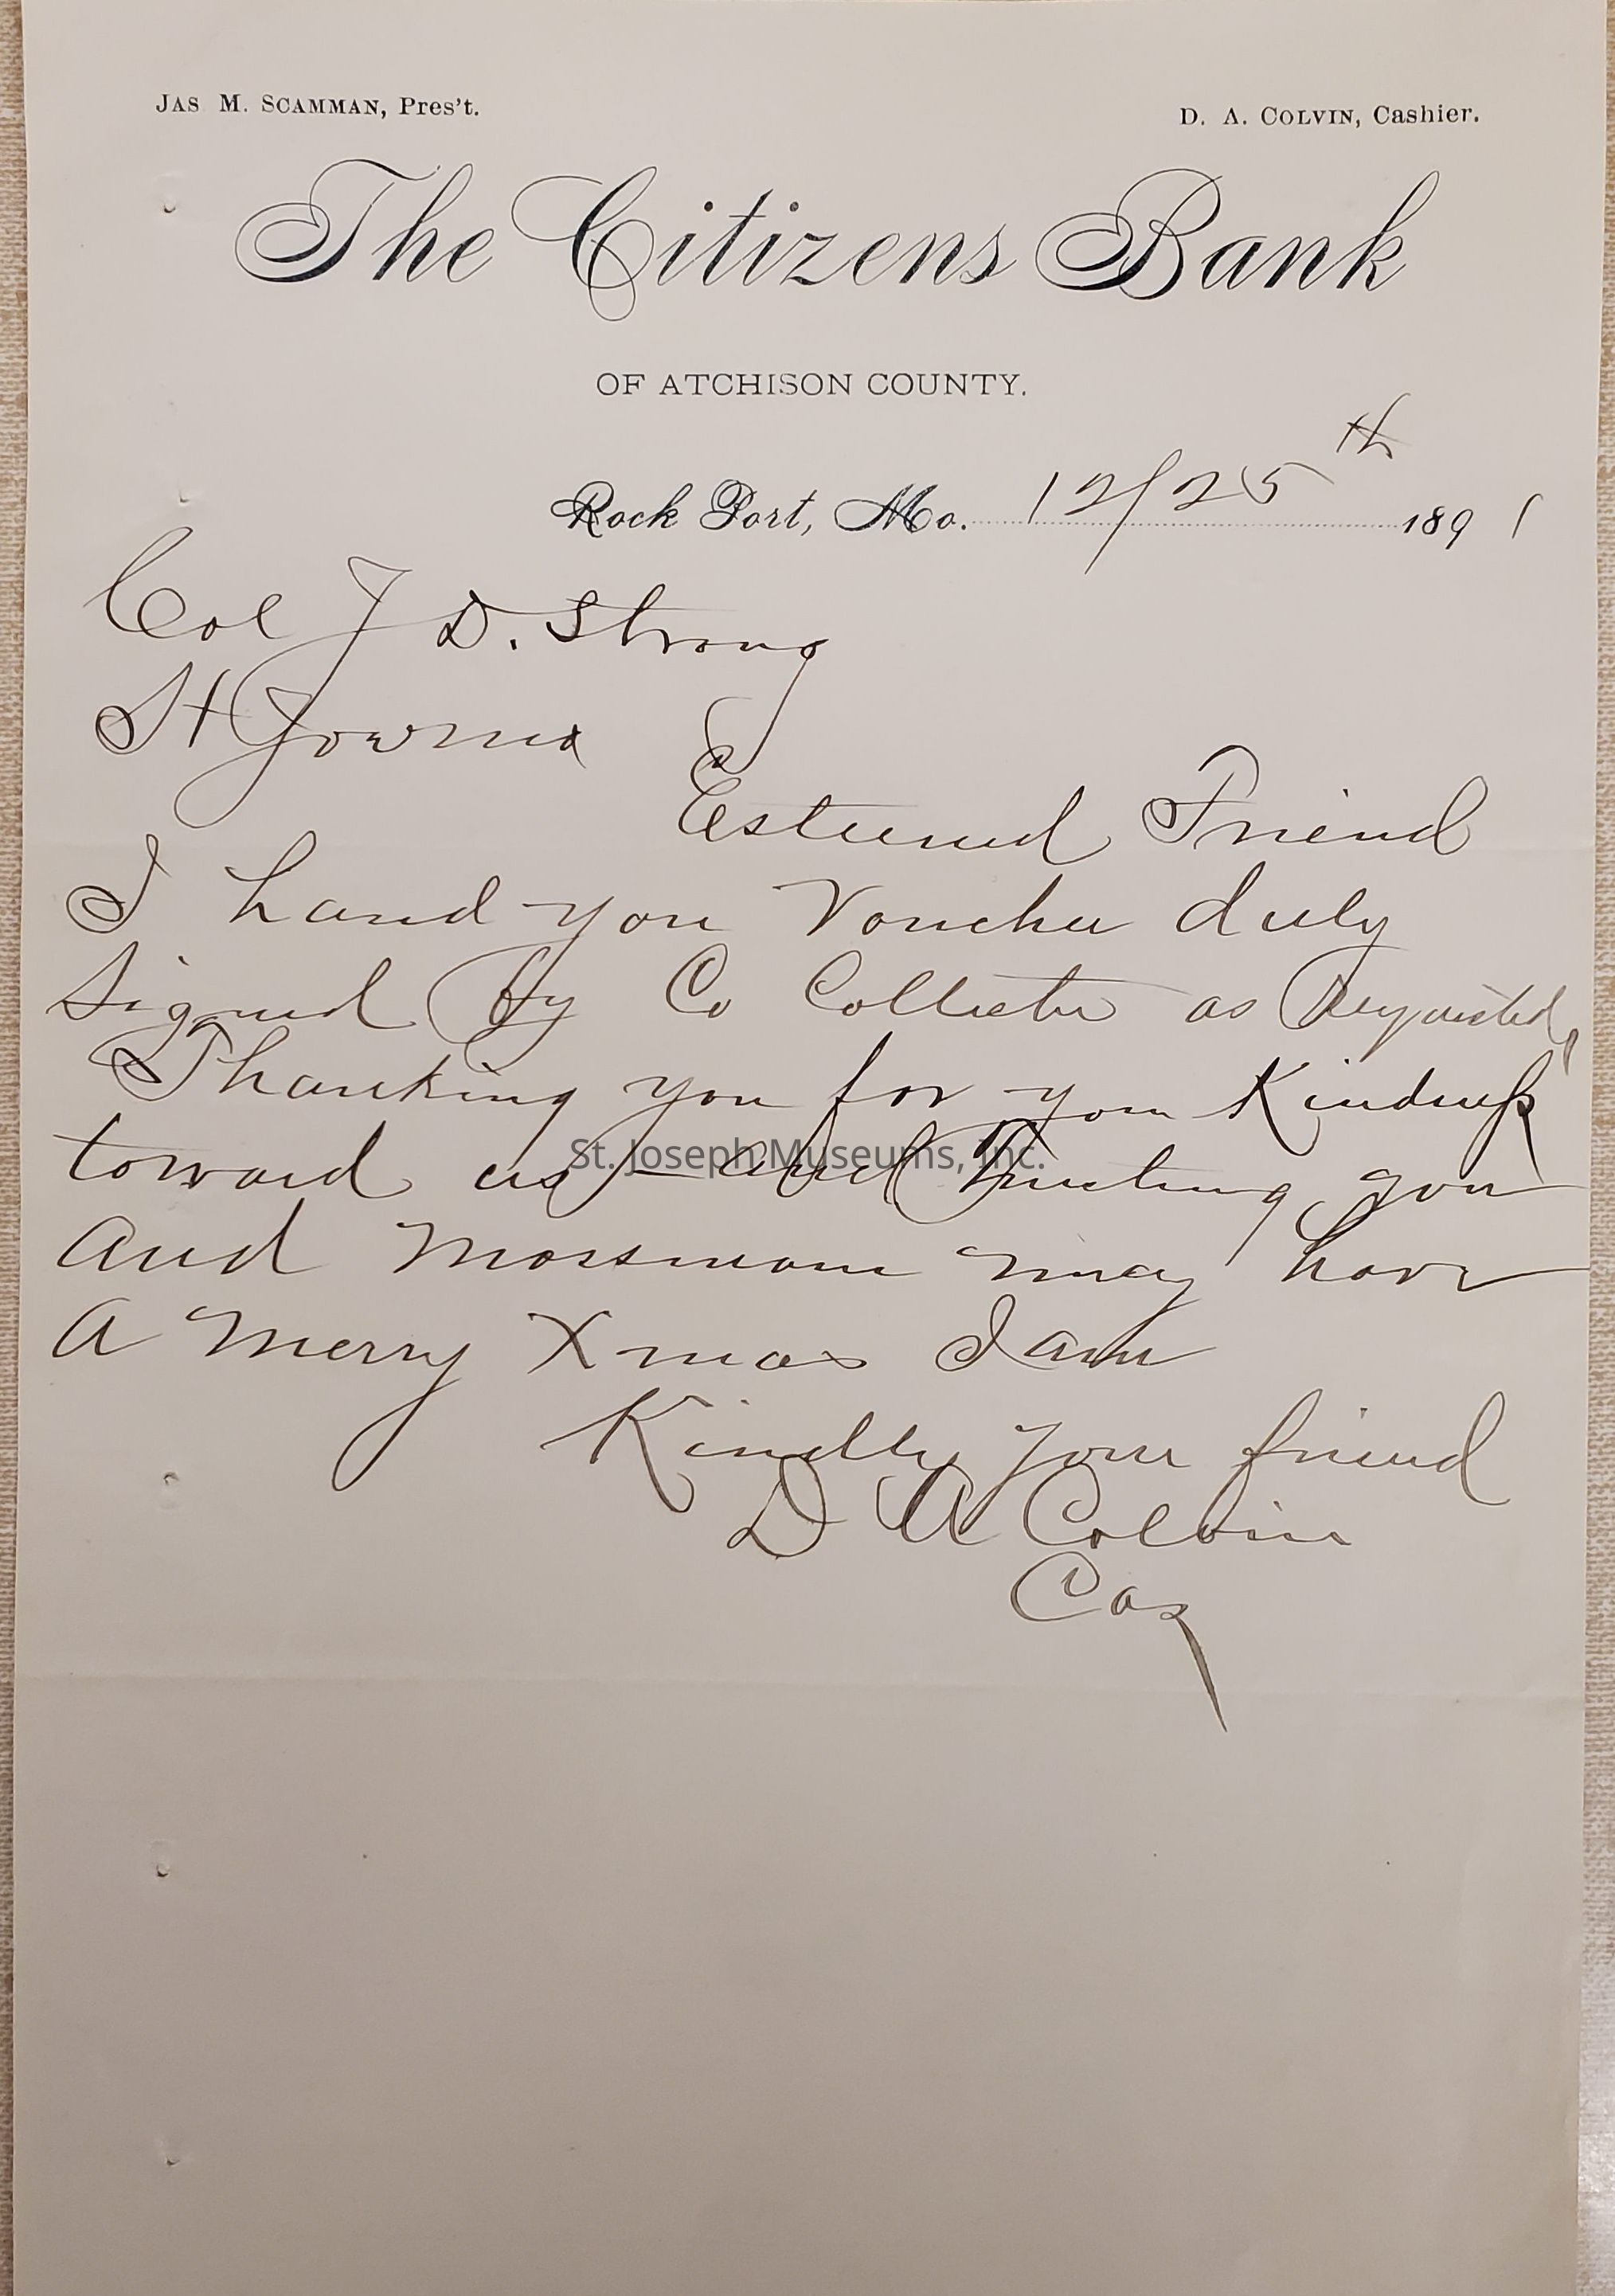 JAS M. SCAMMAN, Pres't.
D. A. COLVIN, Cashier.
The Citizens Bank
OF ATCHISON COUNTY.
Rock Port, Mo. 12/25th 1891
Col J D. Strong
St
Esteemed Friend
I hand you Voucher duly
Signed by Co Collector as Requested,
Thanking you for your Kindness
toward us - And Trusting you
And Mossman may have
A Merry Xmas I am
Kindly your friend
D A Colvin
Cas
St. Joseph Museums, Inc.